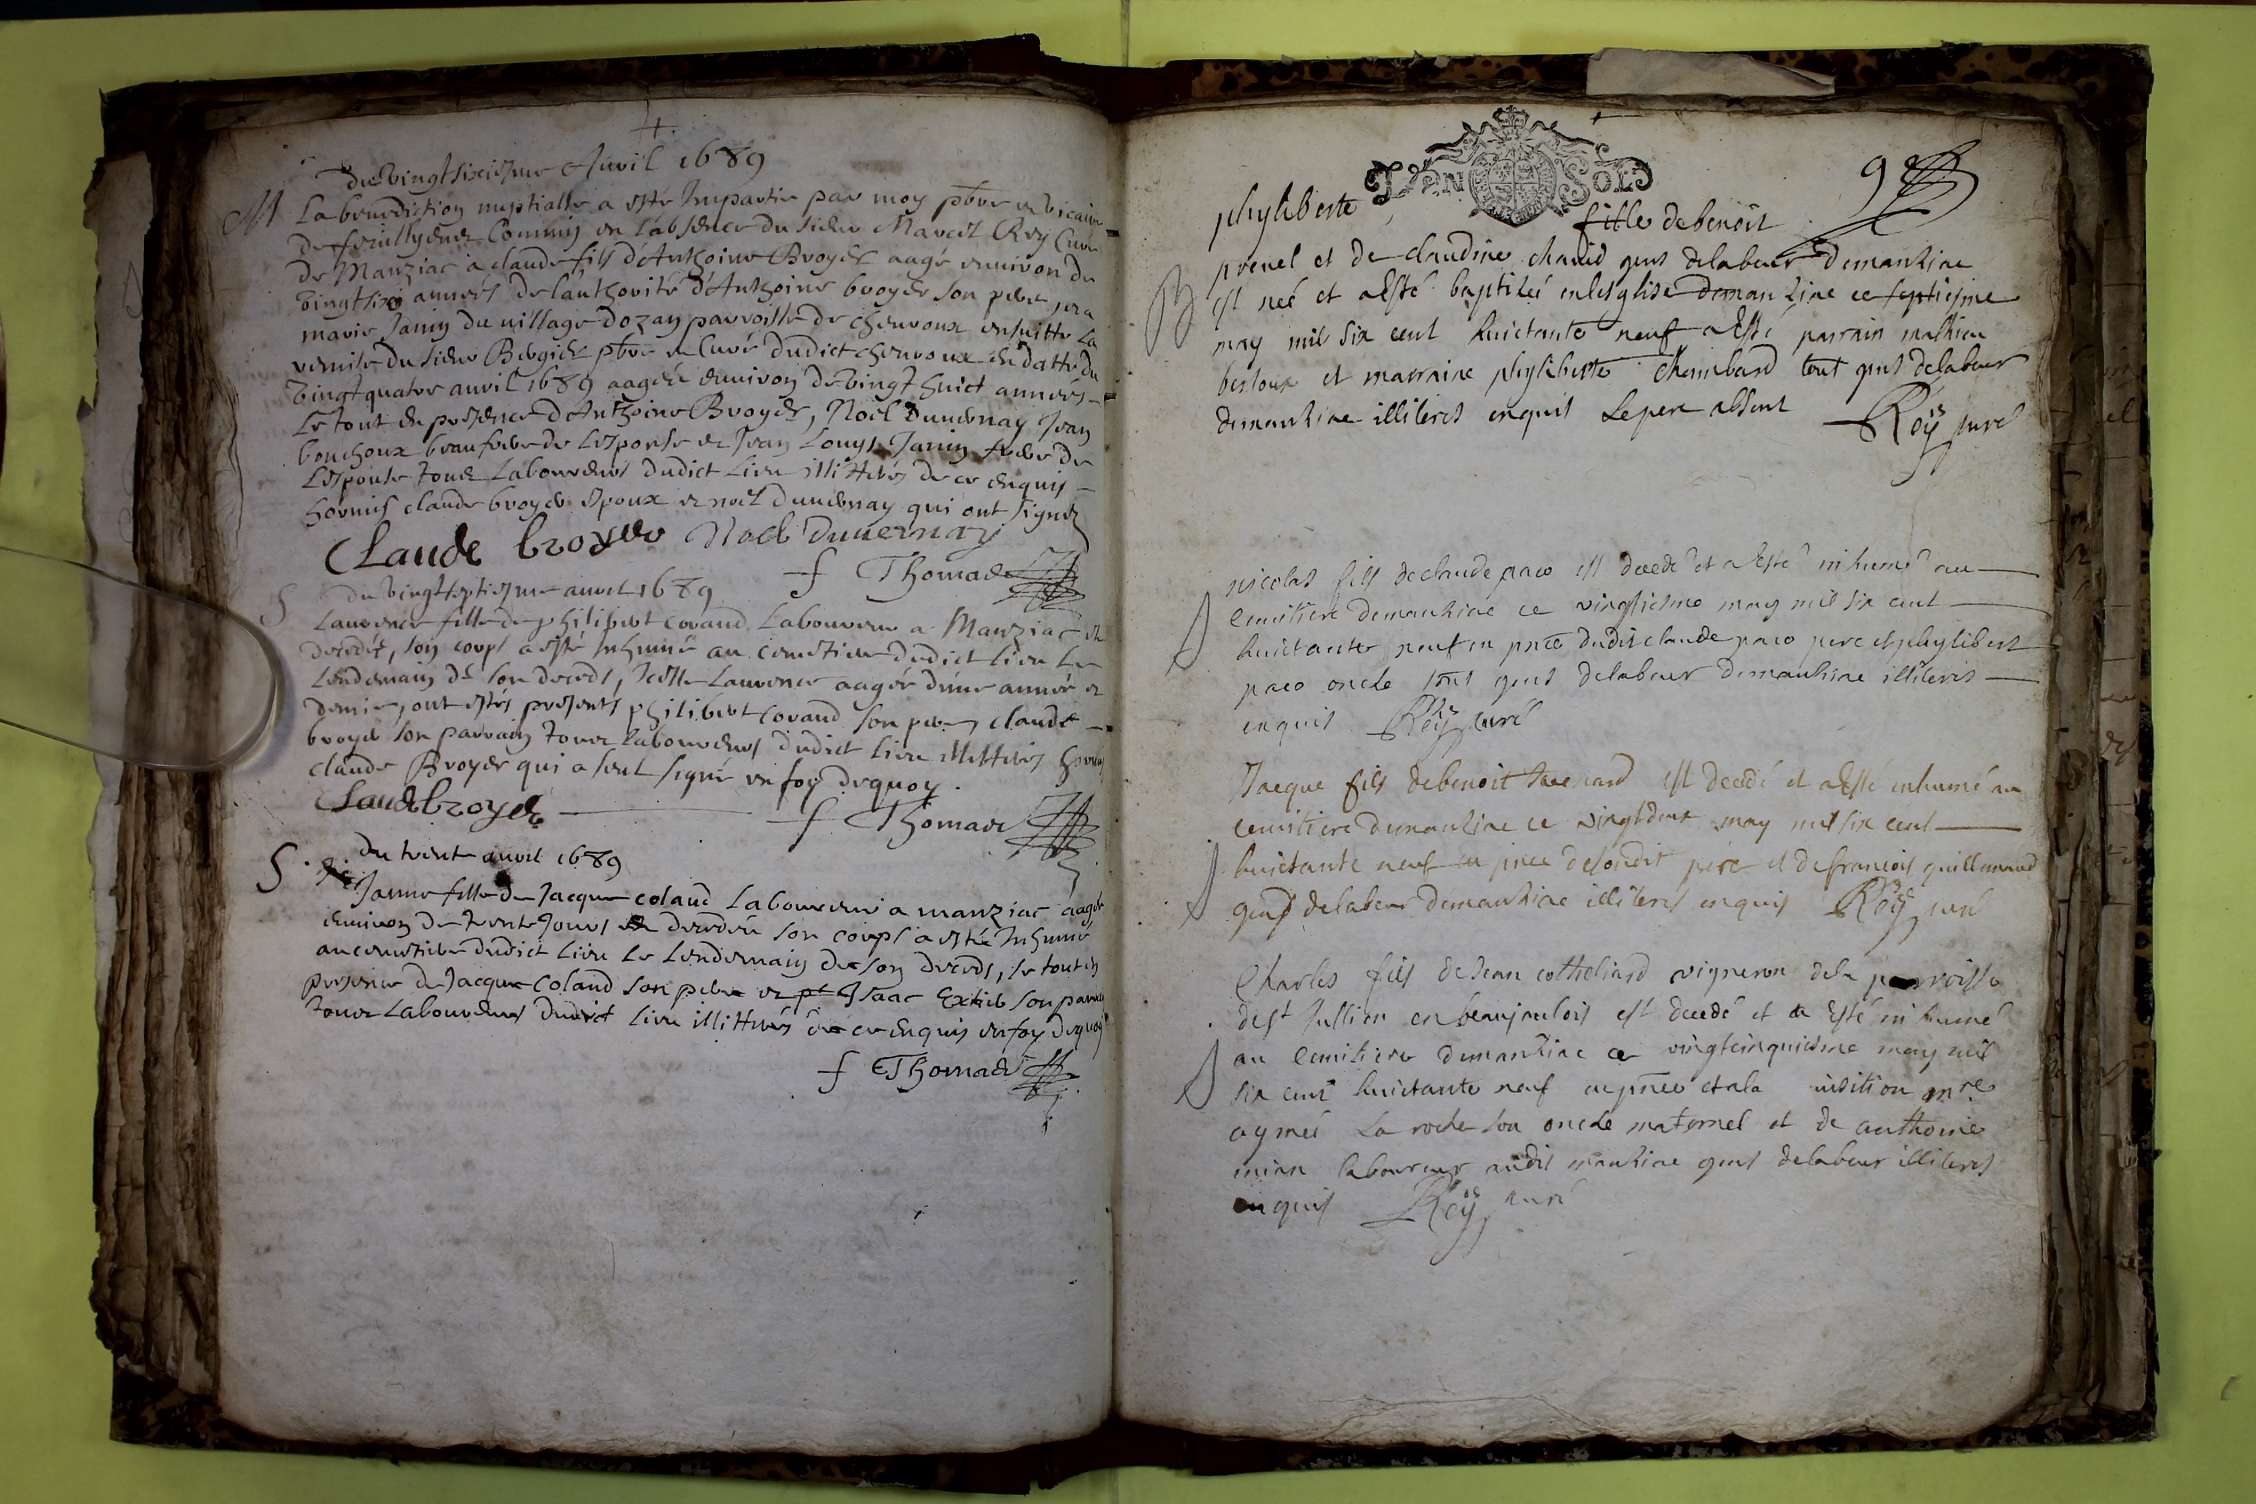 du vingt sixiesme Auril 1689
M La benediction nuptialle a esté Impartie par moy pbre et vicaire
de feuillyenes Commis en l'absence du sieur Marcel Rey Curé
de Manziac a claude fils d'Anthoine Broyer aagé enuiron de
vingt six années de l'authorité d'Anthoine broyer son pere, et a
marie Janin du uillage dozan parroisse de cheuroux ensuitte la
remise du sieur pbre et Curé dudict cheuroux en datte du
vingt quatre auril 1689 aagée enuiron de vingt huict années
le tout en presence d'Anthoine Broyer, Noel Duuernay Jean
bouchoux beaufrere de lespouse et Jean Louys Janin frere de
Lespouse tous Laboureurs dudict Lieu illitterés de ce enquis
hormis claude broyer espoux et noel duuernay qui ont signez
Claude broyer Noel Duuernay
f Thomas
S du vingt septiesme auril 1689
Laurence fille de philibert Corand Laboureur a Manziac est
decedée, son corps a esté Inhumé au cemetiere dudict lieu le
lendemain de son deceds, Icelle Laurence aagée d'une année et
demie, ont estés presents philibert Corand son pere, claude
broyer son parrain tous laboureurs dudict lieu illitterés hormis
claude Broyer qui a seul signé en foy dequoy.
Claude broyer
f Thomas
S. du trente auril 1689
Janne fille de Jacque coland Laboureur a manziac aagée
enuiron de trente Jours est decedée son corps a esté Inhumé
au cemetiere dudict lieu le lendemain de son deceds, le tout en
presence de Jacque Coland son pere et Isaac son parrain
tous Laboureurs dudict lieu illitterés de ce enquis en foy dequoy
f Thomas
9
phyliberte fille de benoit
preuel et de claudine chanid gens delabeur demanziac
B est neé et a Esté baptizeé enlesglise demanziac ce septiesme
may mil six cent huictante neuf a Esté parrain mathieu
bertoux et marraine phyliberte chambard tout gens delabeur
demanziac illiteres enquis Le pere absent Rey curé
nicolas fils declaude paco est decedé et a Esté inhumé au
S cemitiere demanziac ce vingtiesme may mil six cent
huictante neuf en pnce dudit claude paco pere et phylibert
paco oncle tous gens delabeur demanziac illiteres
enquis Rey curé
Jacque fils debenoit est decedé et a Esté inhumé au
cemitiere demanziac ce vingtdeux may mil six cent
S huictante neuf en pnce desondit pere et defrancois guillemaud
gens delabeur demanziac illiteres enquis Rey curé
Charles fils deJean cotheliard vigneron dela parroisse
dest Jullien en beaujaulois est decedé et a Esté inhumé
S au cemitiere demanziac ce vingtcinquiesme may mil
six cent huictante neuf en pnce et a la
aymeé La roche son oncle maternel et de anthoine
laboureur audit manziac gens delabeur illiteres
enquis Rey curé